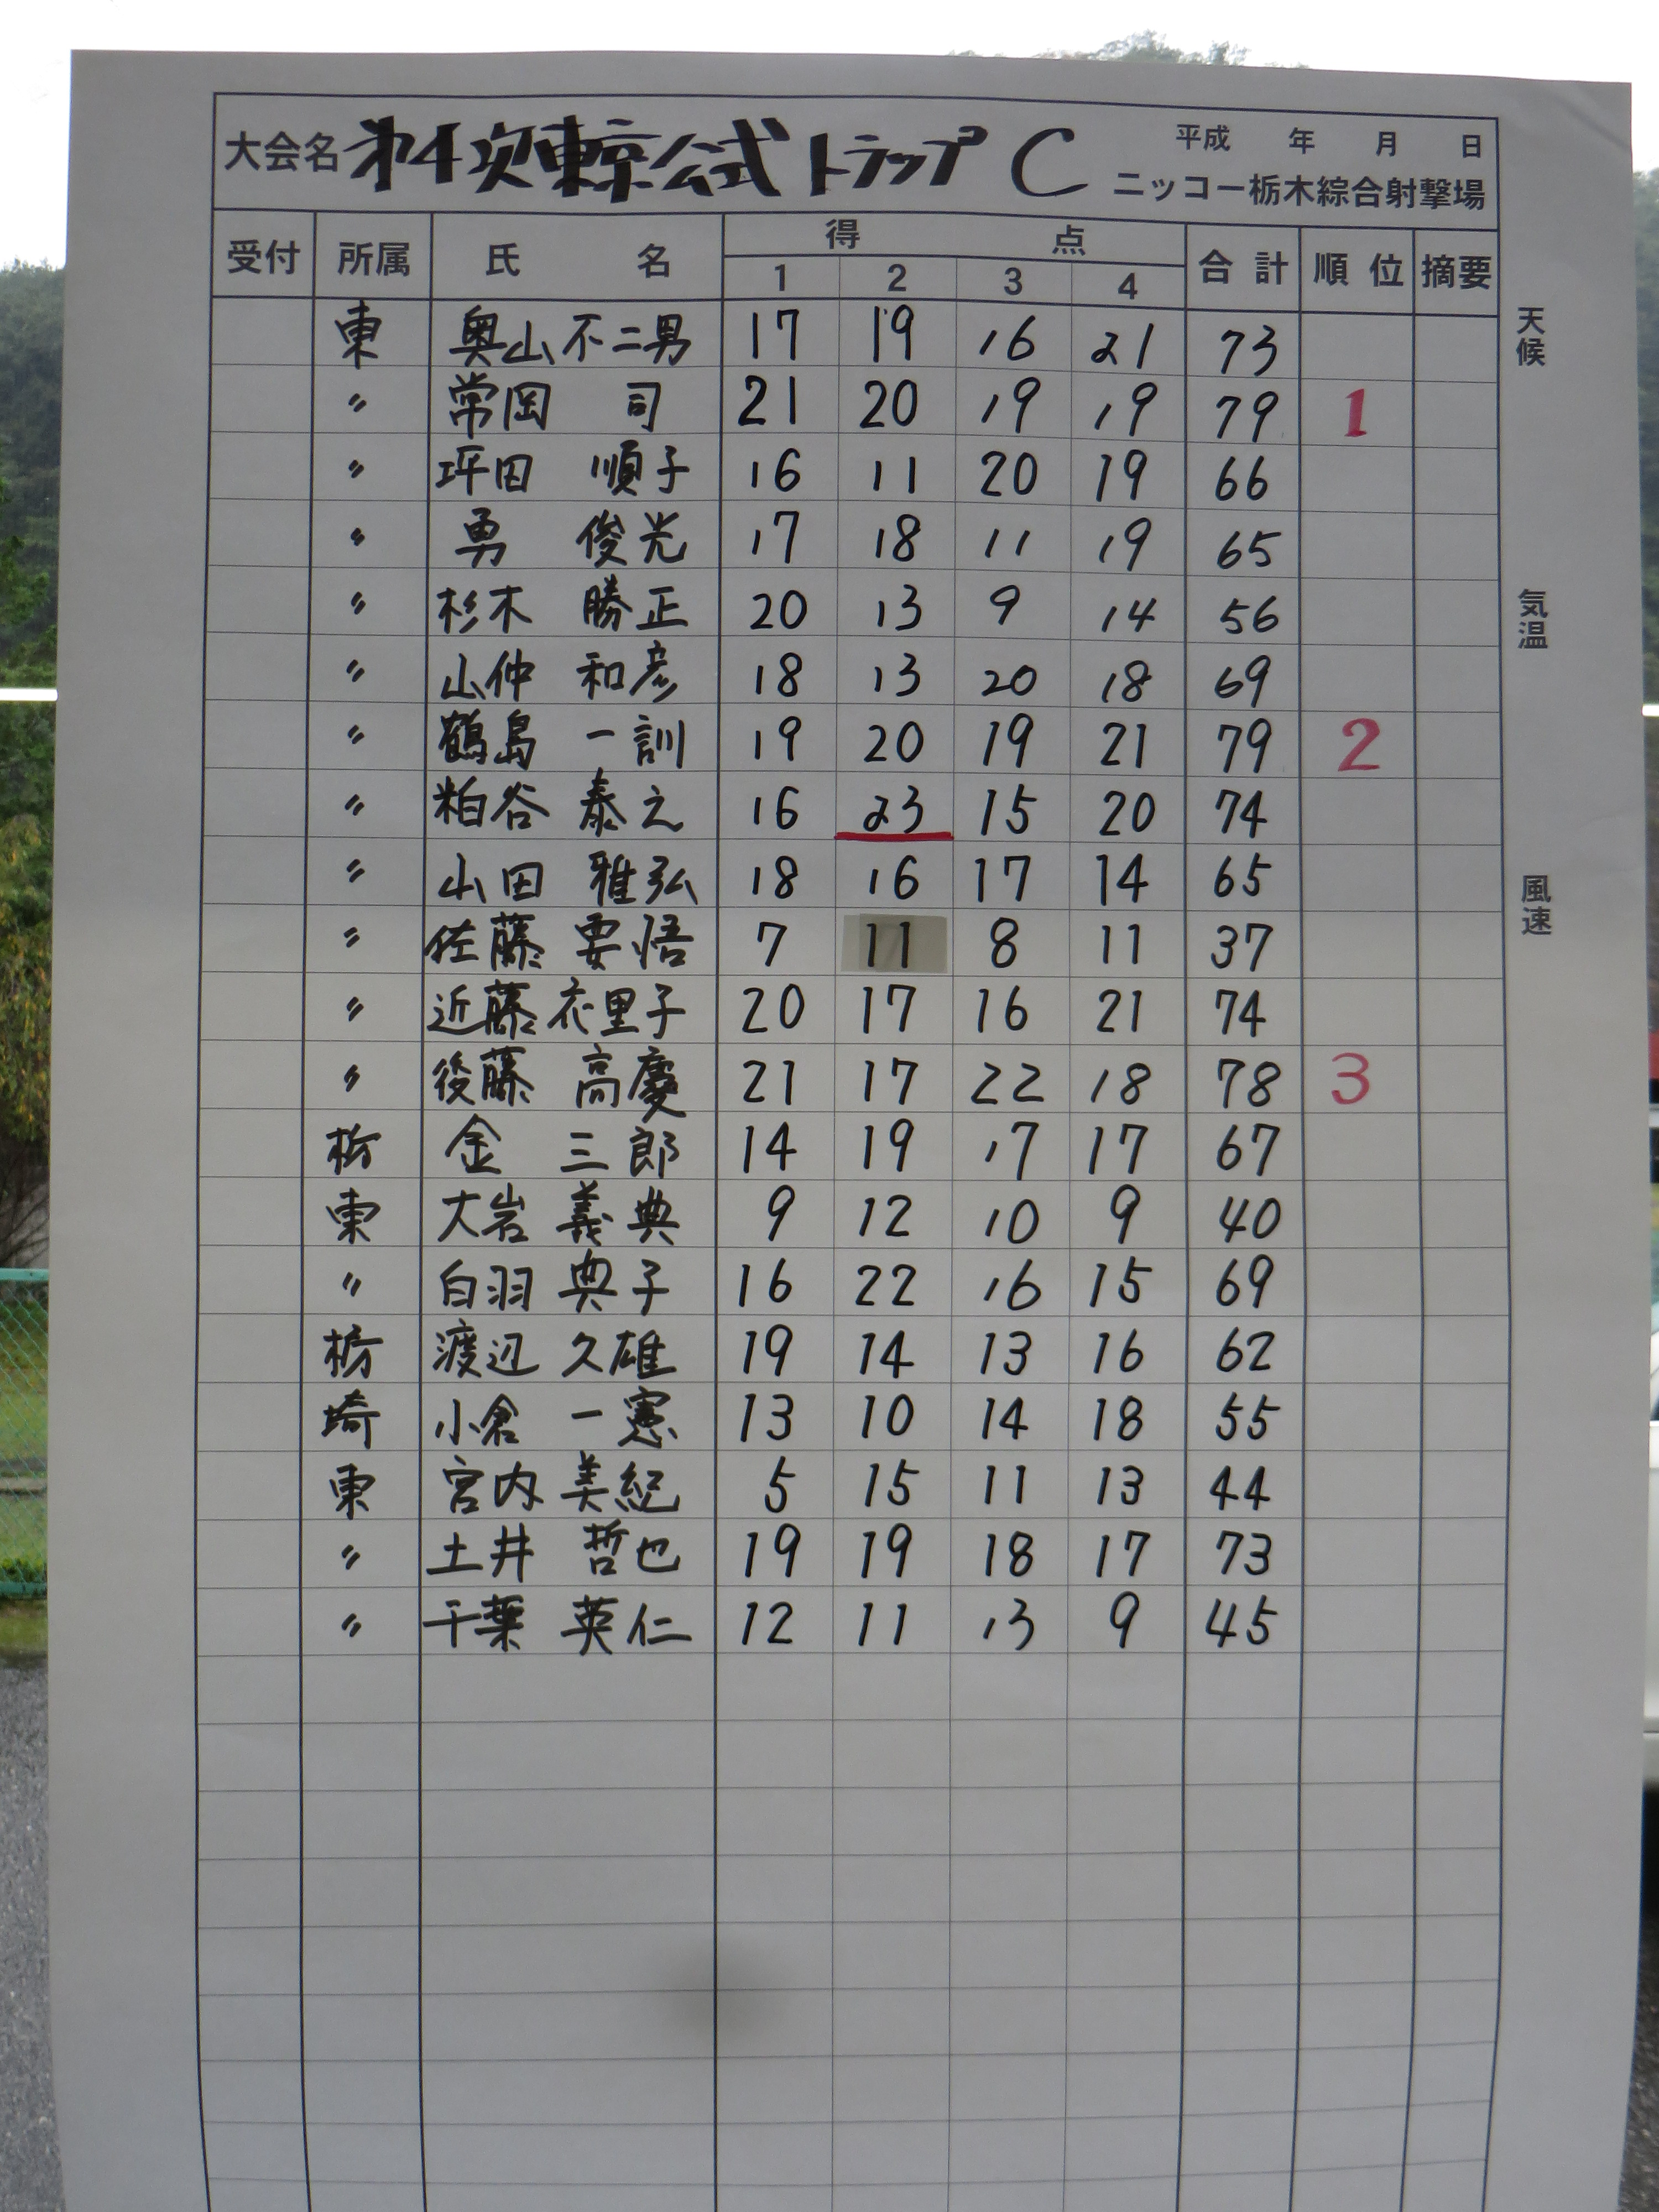 大会名 オ4次東京公式トラップ C 平成 年 月 日
ニッコー栃木綜合射撃場
受付 所属 氏 名 得 点 合計 順位 摘要
1 2 3 4
東 奥山不二男 17 19 16 21 73
〃 常岡 司 21 20 19 19 79 1
〃 坪田 順子 16 11 20 19 66
〃 勇 俊光 17 18 11 19 65
〃 杉木 勝正 20 13 9 14 56
〃 山仲 和彦 18 13 20 18 69
〃 鶴島 一訓 19 20 19 21 79 2
〃 粕谷 泰之 16 23 15 20 74
〃 山田 雅弘 18 16 17 14 65
〃 佐藤 要悟 7 11 8 11 37
〃 近藤 衣里子 20 17 16 21 74
〃 後藤 高慶 21 17 22 18 78 3
栃 金 三郎 14 19 17 17 67
東 大岩 義典 9 12 10 9 40
〃 白羽 典子 16 22 16 15 69
栃 渡辺 久雄 19 14 13 16 62
埼 小倉 一憲 13 10 14 18 55
東 宮内 美紀 5 15 11 13 44
〃 土井 哲也 19 19 18 17 73
〃 千葉 英仁 12 11 13 9 45
天候
気温
風速